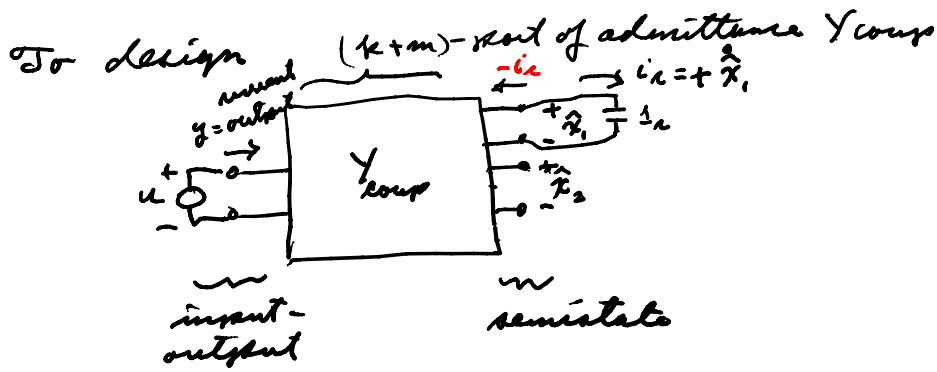 To design (k+m)-port of admittance Y coup
current
y=output
-i_r
i_r = + \dot{\hat{x}}_1
+
u
-
Y coup
+
\hat{x}_1
-
1_r
+
\hat{x}_2
-
input-
output
semistate